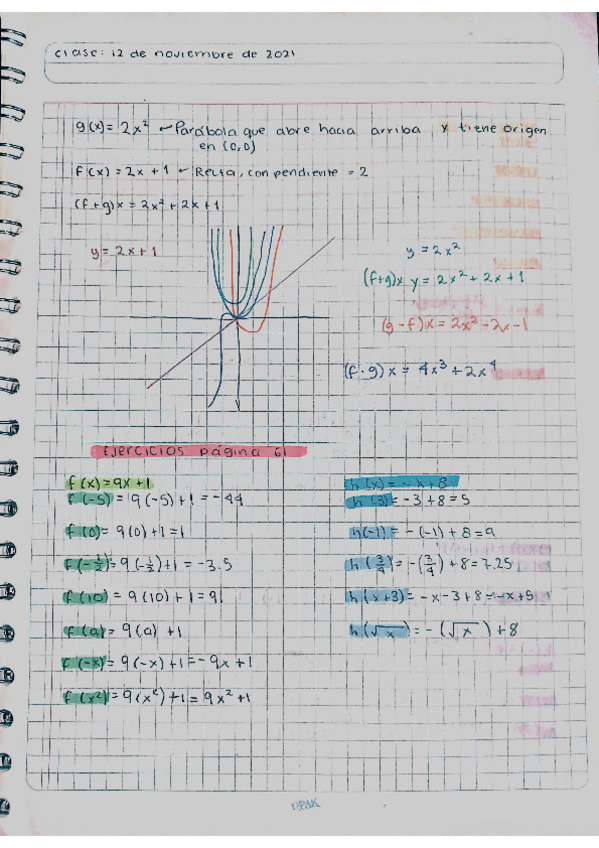 clase: 12 de noviembre de 2021
g(x) = 2x² ← Parábola que abre hacia arriba y tiene origen
en (0,0)
f(x) = 2x + 1 ← Recta, con pendiente = 2
(f+g)x = 2x² + 2x + 1
y = 2x + 1
y = 2x²
(f+g)x y = 2x² + 2x + 1
(g-f)x = 2x² - 2x - 1
(f·g)x = 4x³ + 2x⁴
EJERCICIOS página 61
f(x) = 9x + 1
f(-5) = 9(-5) + 1 = -44
f(0) = 9(0) + 1 = 1
f(-1/2) = 9(-1/2) + 1 = -3.5
f(10) = 9(10) + 1 = 91
f(a) = 9(a) + 1
f(-x) = 9(-x) + 1 = -9x + 1
f(x²) = 9(x²) + 1 = 9x² + 1
h(x) = -x + 8
h(3) = -3 + 8 = 5
h(-1) = -(-1) + 8 = 9
h(3/4) = -(3/4) + 8 = 7.25
h(x+3) = -x - 3 + 8 = -x + 5
h(√x) = -(√x) + 8